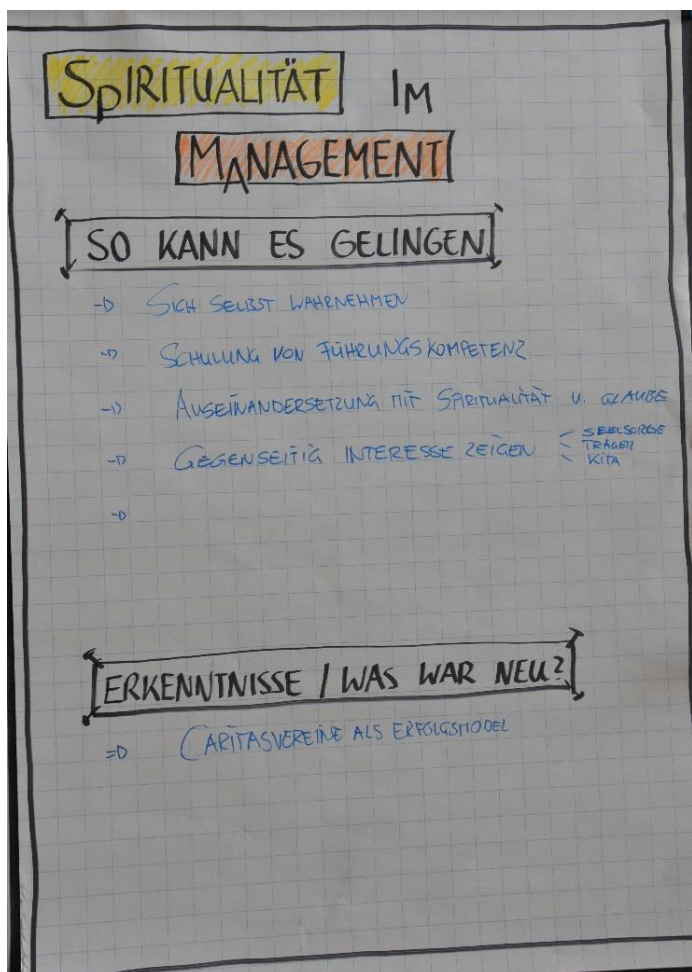 SPIRITUALITÄT IM
MANAGEMENT
SO KANN ES GELINGEN
→ SICH SELBST WAHRNEHMEN
→ SCHULUNG VON FÜHRUNGSKOMPETENZ
→ AUSEINANDERSETZUNG MIT SPIRITUALITÄT U. GLAUBE
→ GEGENSEITIG INTERESSE ZEIGEN
SEELSORGE
TRÄGER
KITA
→
ERKENNTNISSE / WAS WAR NEU?
⇒ CARITASVEREINE ALS ERFOLGSMODEL